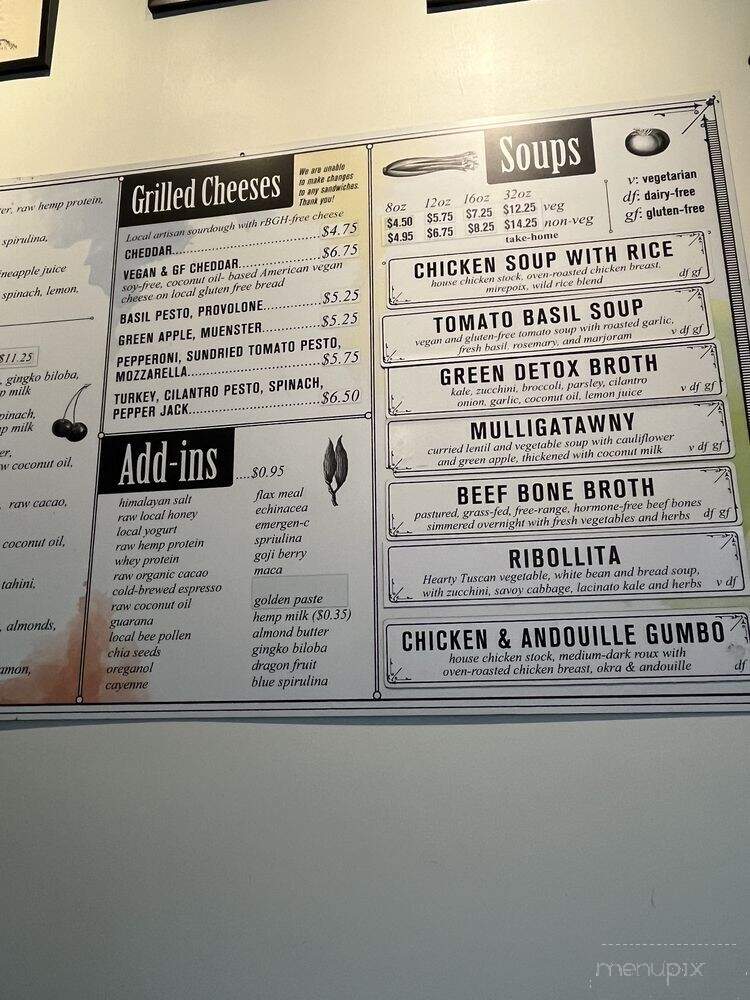 er, raw hemp protein,
spirulina,
neapple juice
spinach, lemon,
$11.25
, gingko biloba,
p milk
pinach,
p milk
er,
w coconut oil,
, raw cacao,
coconut oil,
tahini,
, almonds,
amon,
Grilled Cheeses
We are unable
to make changes
to any sandwiches.
Thank you!
Local artisan sourdough with rBGH-free cheese
CHEDDAR................................$4.75
VEGAN & GF CHEDDAR................$6.75
soy-free, coconut oil- based American vegan
cheese on local gluten free bread
BASIL PESTO, PROVOLONE...........$5.25
GREEN APPLE, MUENSTER...........$5.25
PEPPERONI, SUNDRIED TOMATO PESTO,
MOZZARELLA...........................$5.75
TURKEY, CILANTRO PESTO, SPINACH,
PEPPER JACK...........................$6.50
Add-ins ....$0.95
himalayan salt
raw local honey
local yogurt
raw hemp protein
whey protein
raw organic cacao
cold-brewed espresso
raw coconut oil
guarana
local bee pollen
chia seeds
oreganol
cayenne
flax meal
echinacea
emergen-c
spriulina
goji berry
maca
golden paste
hemp milk ($0.35)
almond butter
gingko biloba
dragon fruit
blue spirulina
Soups
v: vegetarian
df: dairy-free
gf: gluten-free
8oz 12oz 16oz 32oz
$4.50 $5.75 $7.25 $12.25 veg
$4.95 $6.75 $8.25 $14.25 non-veg
take-home
CHICKEN SOUP WITH RICE
house chicken stock, oven-roasted chicken breast,
mirepoix, wild rice blend df gf
TOMATO BASIL SOUP
vegan and gluten-free tomato soup with roasted garlic,
fresh basil, rosemary, and marjoram v df gf
GREEN DETOX BROTH
kale, zucchini, broccoli, parsley, cilantro
onion, garlic, coconut oil, lemon juice v df gf
MULLIGATAWNY
curried lentil and vegetable soup with cauliflower
and green apple, thickened with coconut milk v df gf
BEEF BONE BROTH
pastured, grass-fed, free-range, hormone-free beef bones
simmered overnight with fresh vegetables and herbs df gf
RIBOLLITA
Hearty Tuscan vegetable, white bean and bread soup,
with zucchini, savoy cabbage, lacinato kale and herbs v df
CHICKEN & ANDOUILLE GUMBO
house chicken stock, medium-dark roux with
oven-roasted chicken breast, okra & andouille df
menupix